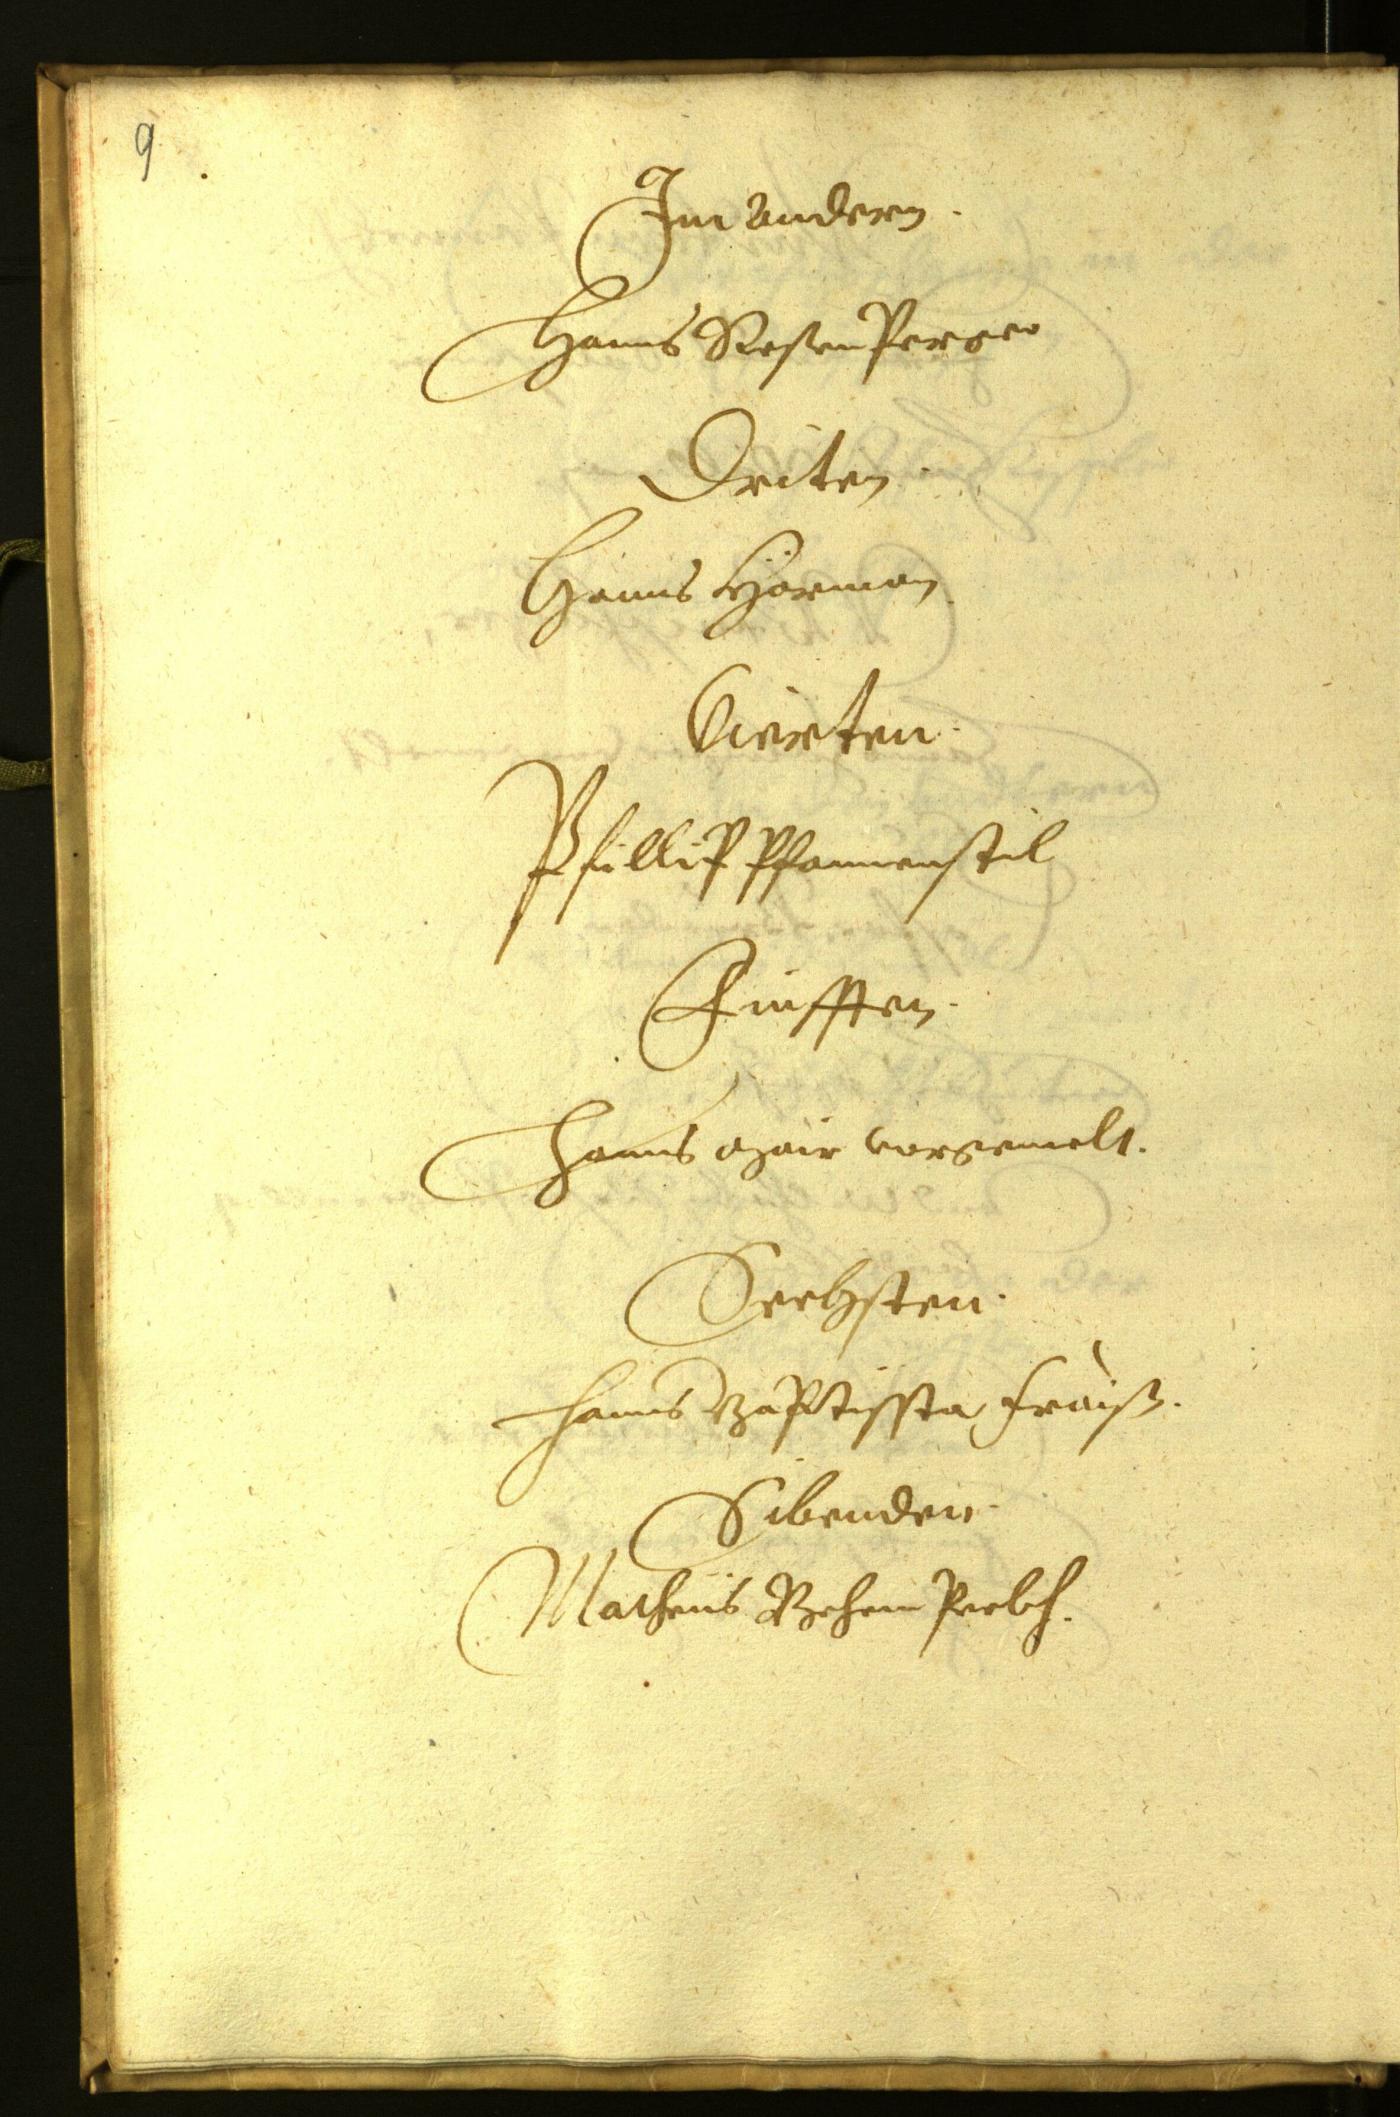 9
Im andern.
Hanns RosenPerger
Driten.
Hanns Hörman
Vierten.
Phillip Pfannenstil
Finfften.
Hanns Mair vorgemelt.
Sechsten.
Hanns Baptissta Fraiß.
Sibenden.
Matheus Behem Perbch.